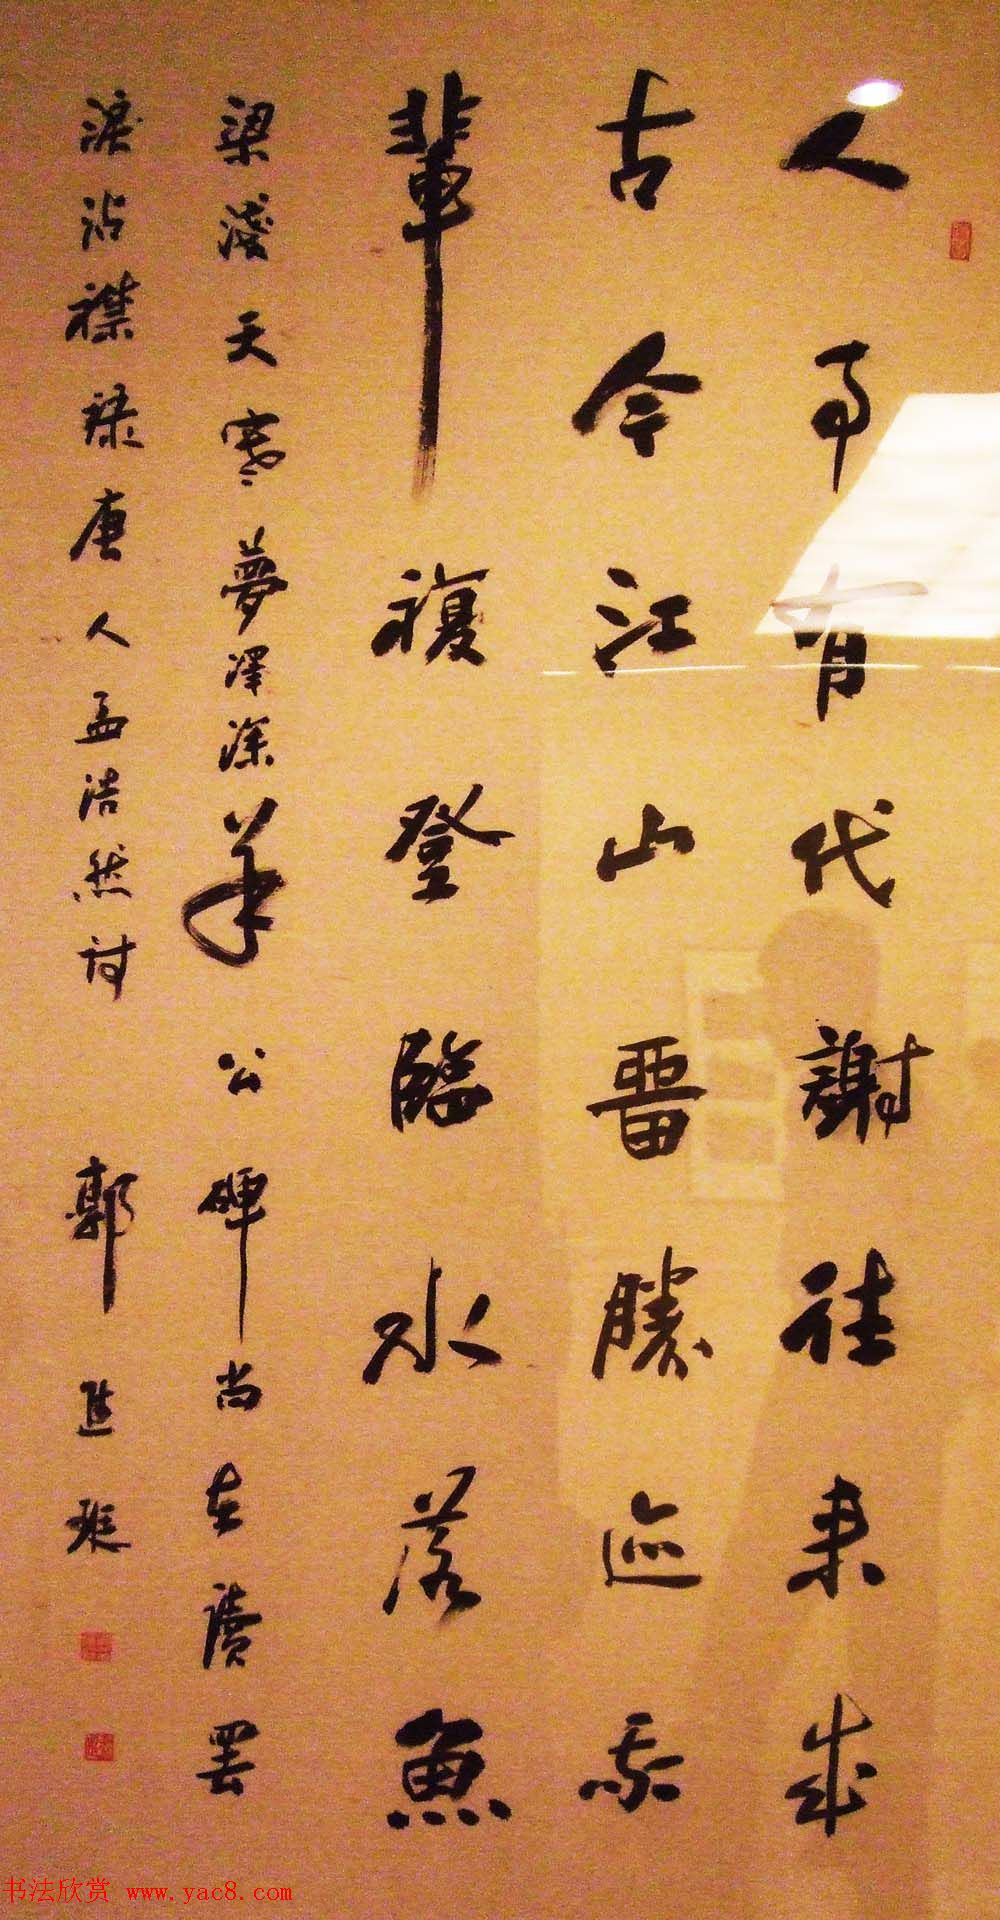 人事有代謝往來成
古今江山畱勝迹我
輩複登臨水落魚
梁淺天寒夢澤深羊公碑尚在讀罷
淚沾襟録唐人孟浩然詩 郭進
书法欣赏 www.yac8.com